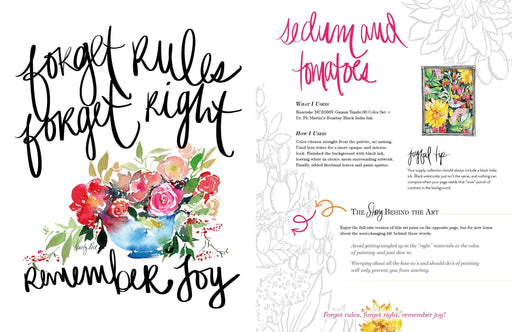 forget rules
forget right
remember joy
sedum and
tomatoes
What I Used:
Kuretake MC20/36V Gansai Tambi 36 Color Set +
Dr. Ph. Martin's Bombay Black India Ink
How I Used:
Color chosen straight from the palette, no mixing.
Used less water for a more opaque and intense
look. Finished the background with black ink,
leaving white or chosen areas surrounding artwork.
Finally, added freehand leaves and paint spatter.
joyful tip
Your supply collection should always include a black India
ink. Black watercolor just isn't the same, and nothing can
compare when your page needs that "wow" punch of
contrast in the background.
The Story Behind the Art
Enjoy the full-size version of this art print on the opposite page, but for now learn
about the soul-changing life behind these words.
Avoid getting tangled up in the "right" materials or the rules
of painting and just dive in.
Worrying about all the how-to's and should-do's of painting
will only prevent you from starting.
Forget rules, forget right, remember joy!